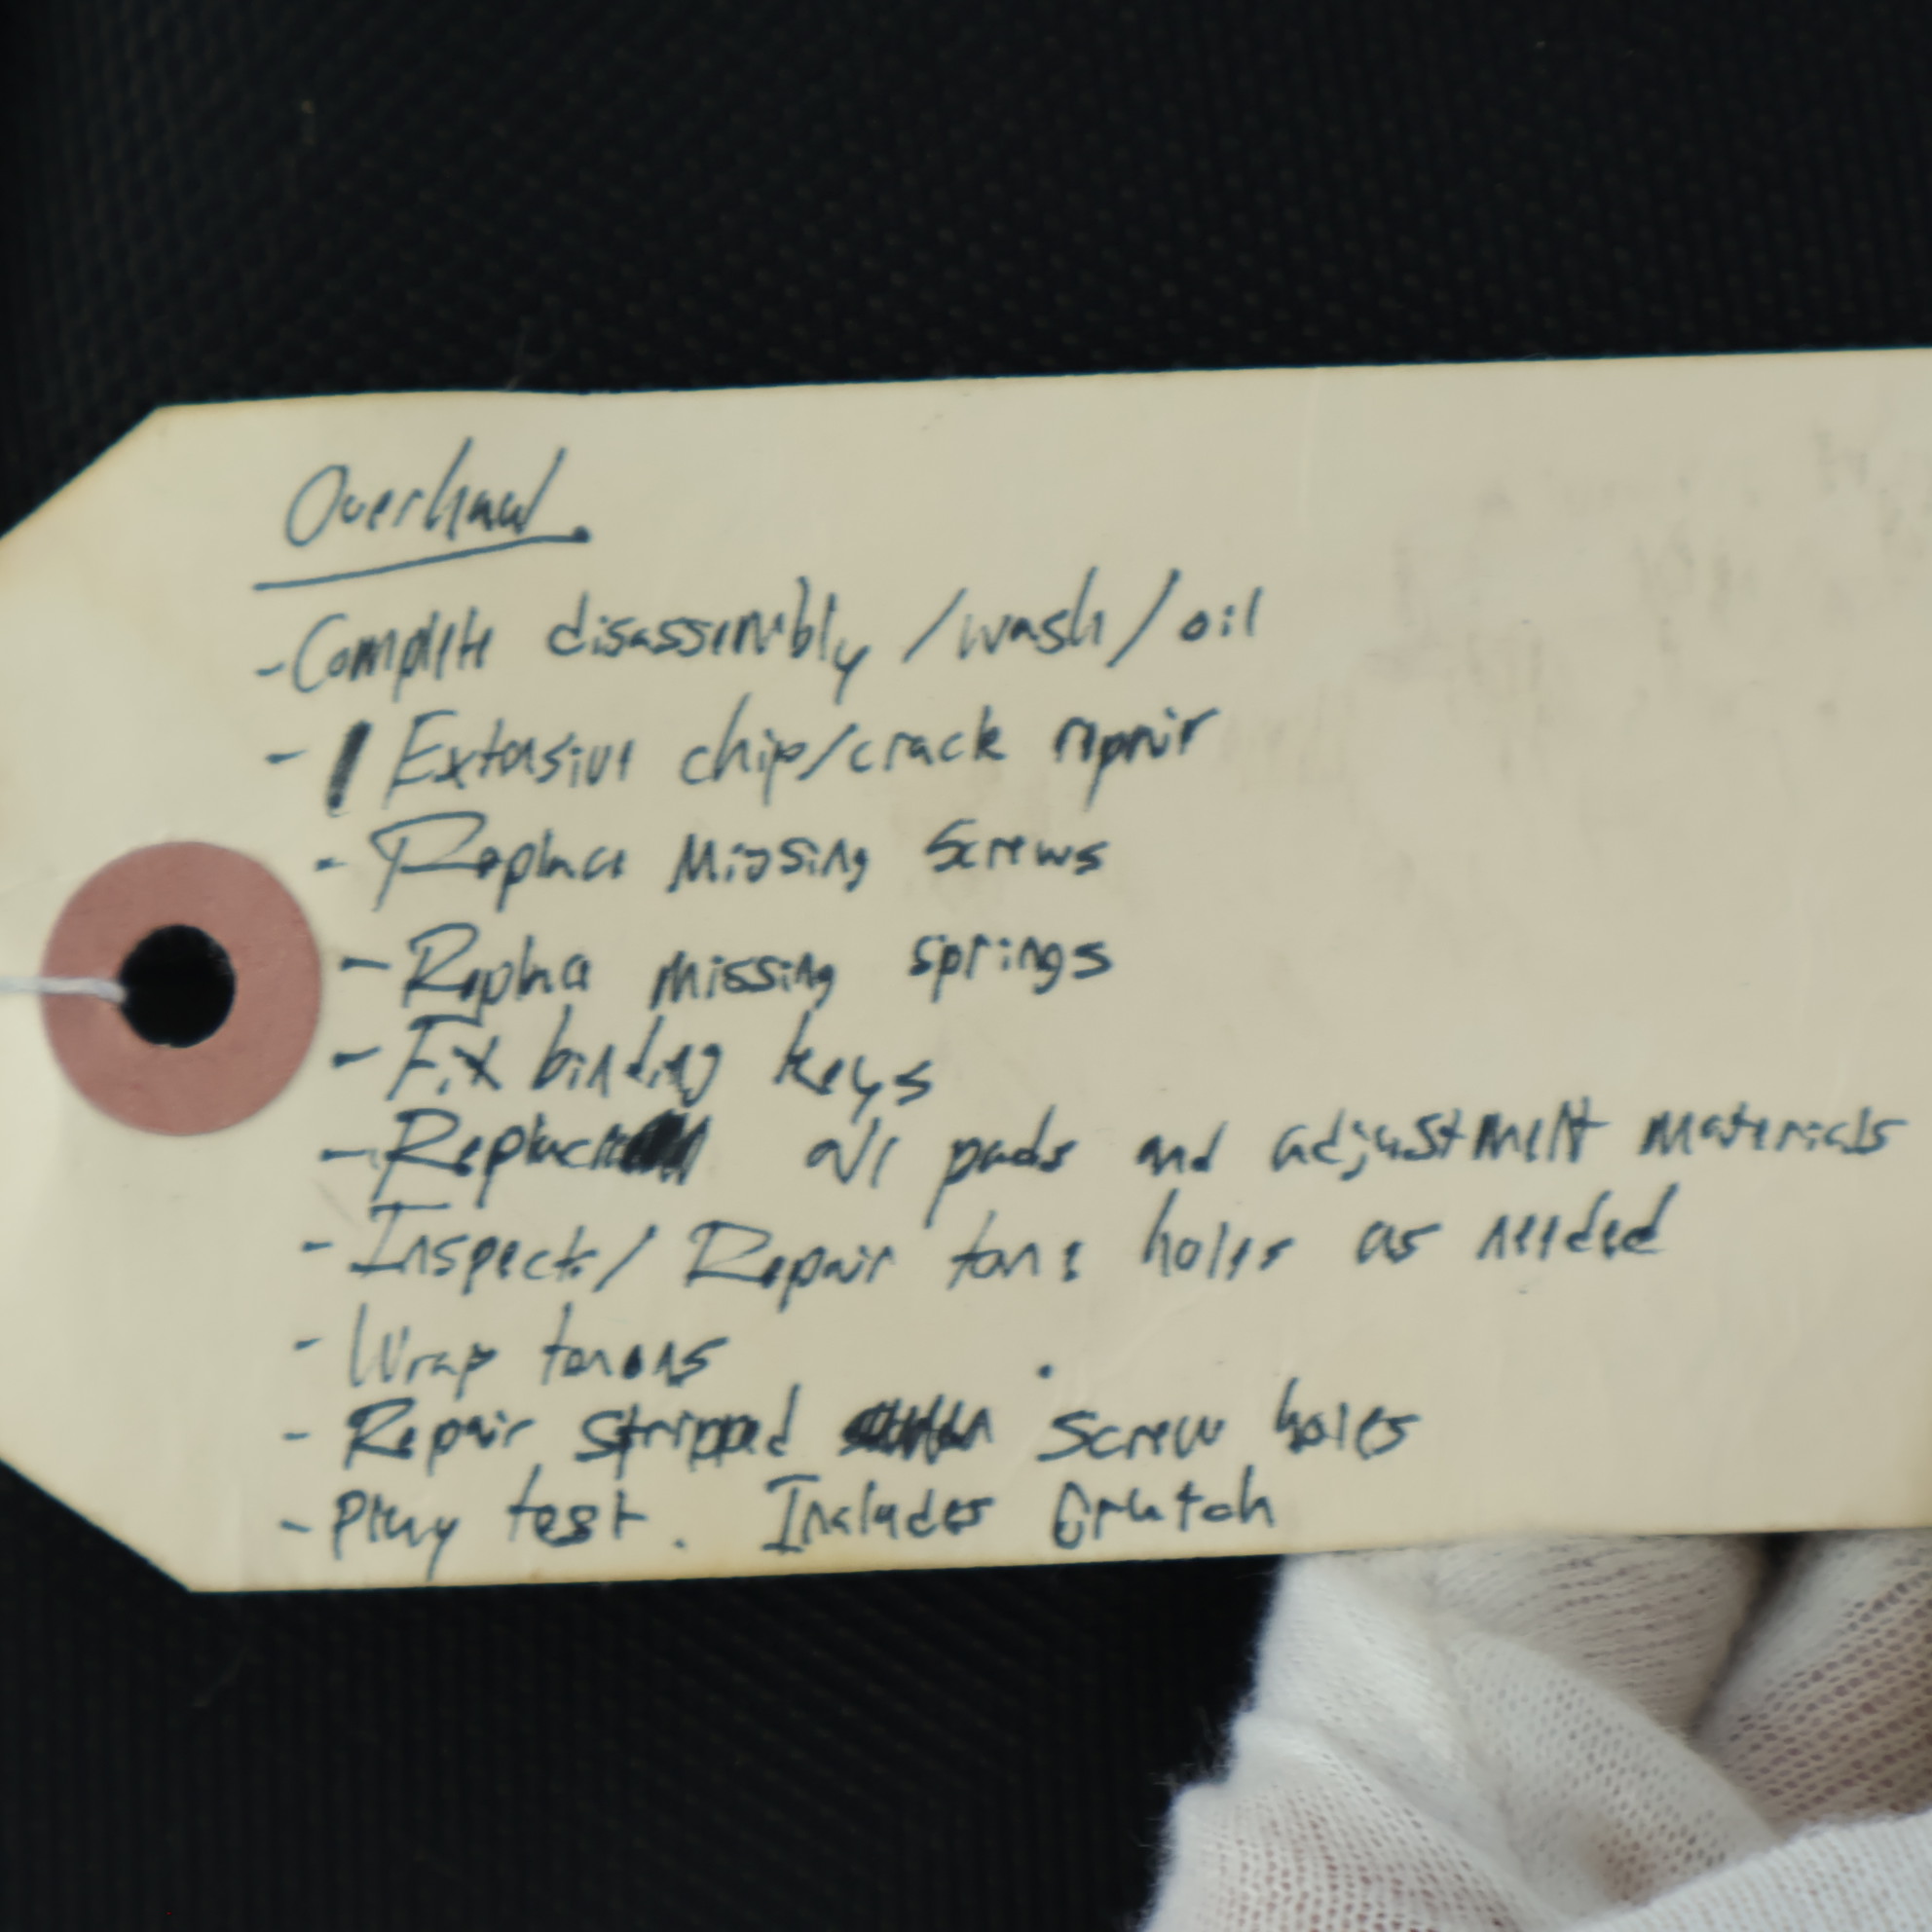 Overhaul
- Complete disassembly / wash / oil
- Extensive chip/crack repair
- Replace Missing Screws
- Replace missing springs
- Fix binding keys
- Replace all pads and adjustment materials
- Inspect / Repair tone holes as needed
- Wrap tenons
- Repair stripped screw holes
- Play test. Includes Crutch